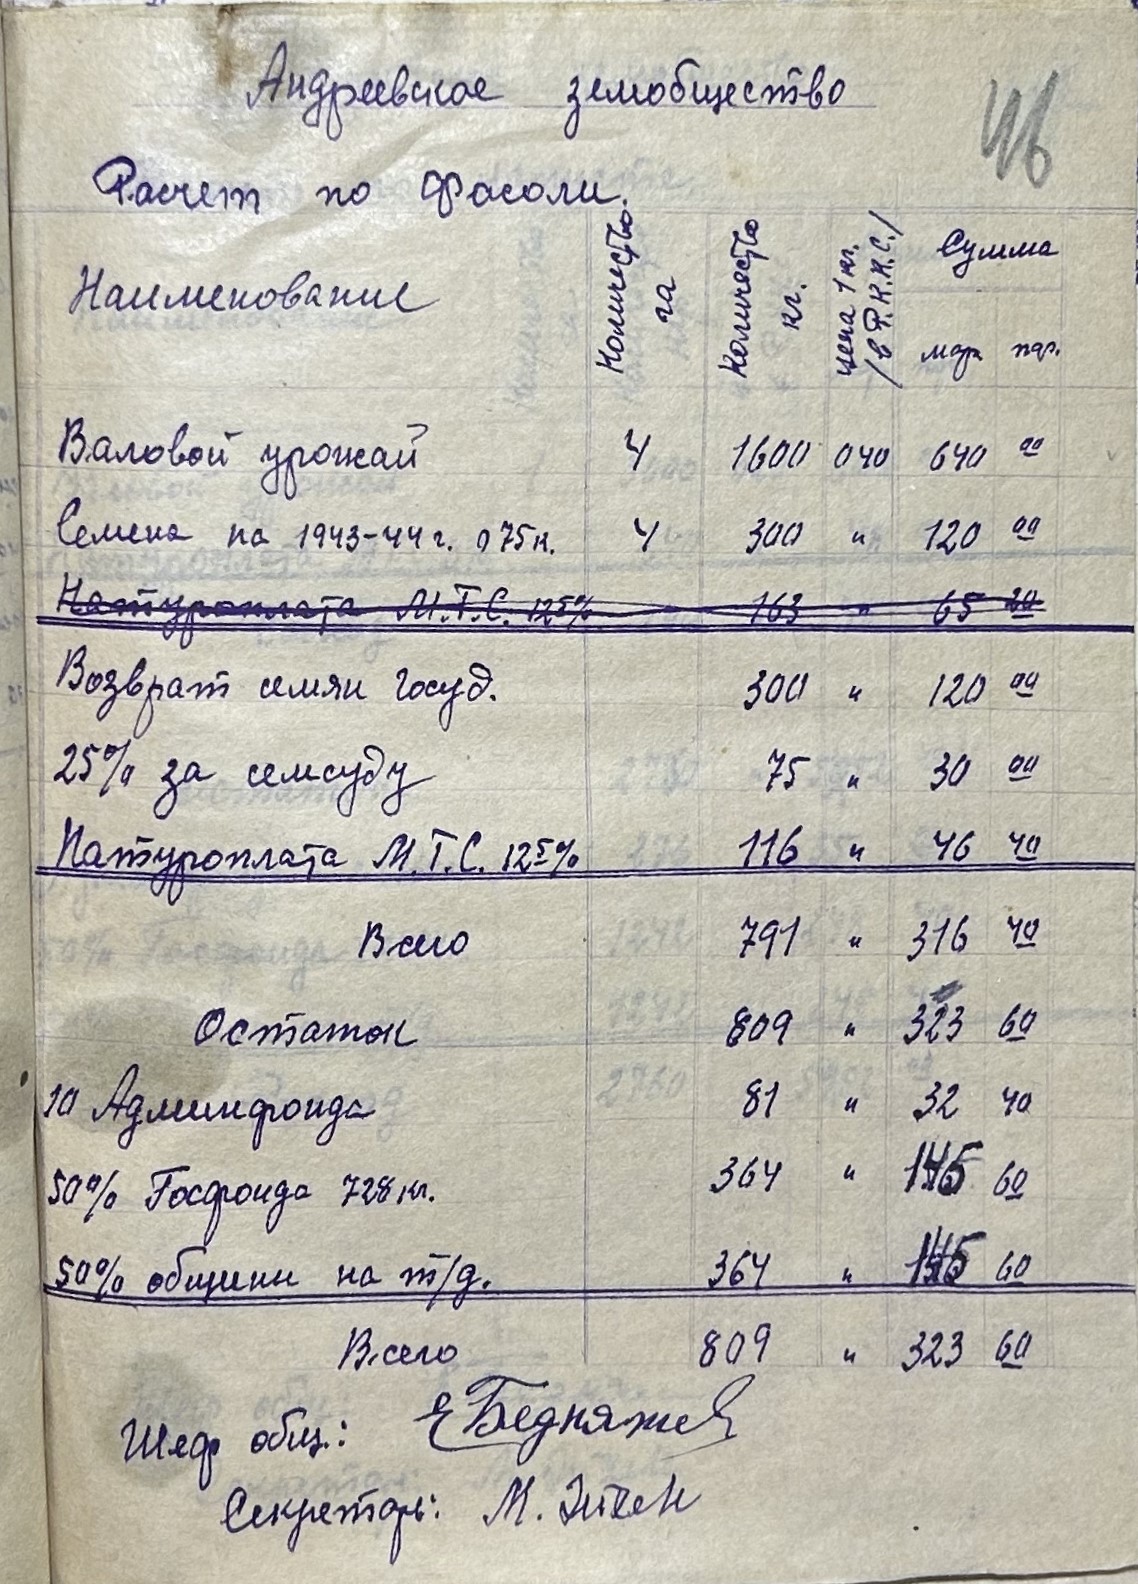 Андреевское земобщество
46
Расчет по фасоли.
Наименование Количество га Количество кг. цена 1 кг. /в Р.К.К.С./ Сумма
мар пф.
Валовой урожай 4 1600 040 640 00
Семена на 1943-44 г. 0 75 к. 4 300 " 120 00
Натуроплата М.Т.С. 12 5% 163 " 65 20
Возврат семян госуд. 300 " 120 00
25% за семсуду 75 " 30 00
Натуроплата М.Т.С. 12 5% 116 " 46 40
Всего 791 " 316 40
Остаток 809 " 323 60
10 Админфонда 81 " 32 40
50% Госфонда 728 кг. 364 " 145 60
50% общины на т/д. 364 " 145 60
Всего 809 " 323 60
Шеф общ.:
Секретарь: М.